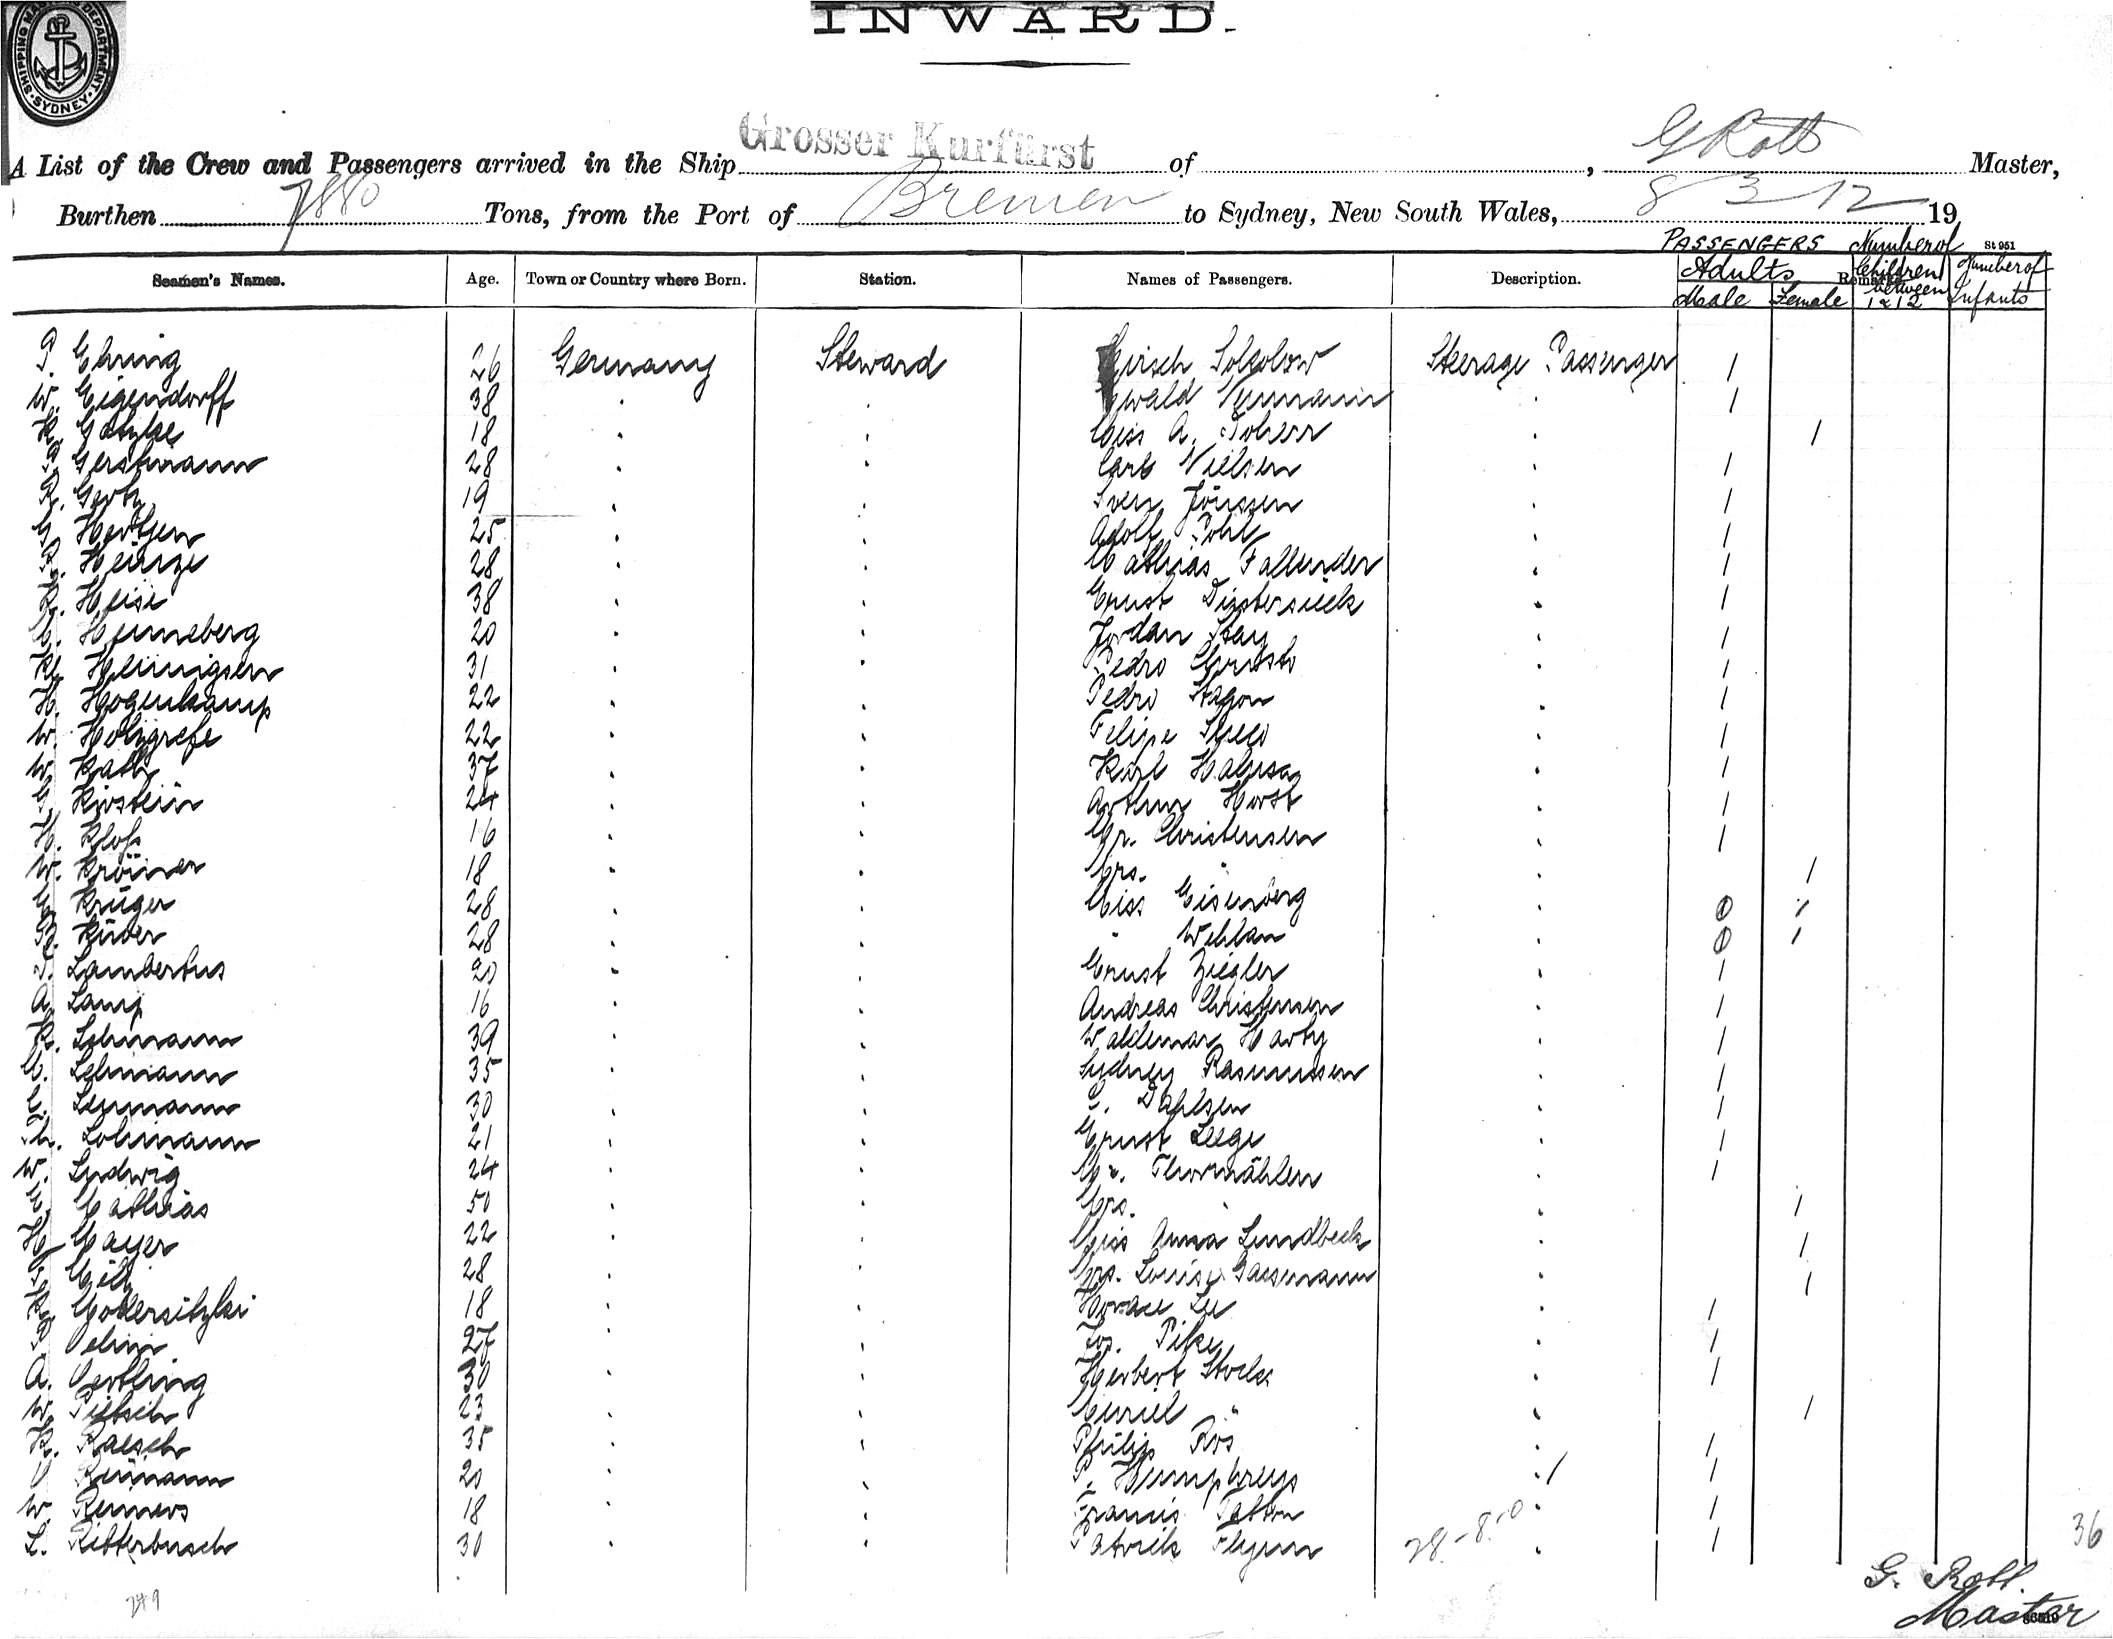 SHIPPING MASTER'S DEPARTMENT · SYDNEY ·
INWARD.
A List of the Crew and Passengers arrived in the Ship Grosser Kurfürst of , G Rott Master,
Burthen 7880 Tons, from the Port of Bremen to Sydney, New South Wales, 8 3 12 19
PASSENGERS Number of St 951
Seamen's Names. Age. Town or Country where Born. Station. Names of Passengers. Description. Adults Remarks Children between 1 & 12 Number of Infants
Male Female
P. Ehring 26 Germany Steward Hirsch Sokolow Steerage Passenger 1
W. Eigendorff 38 " " Ewald Neumann " 1
18 " " Miss A. " 1
Gerstmann 28 " " Carl Nielsen " 1
R. Gertz 19 " " Sven Jönssen " 1
G. Hertgen 25 " " Adolf Pohl " 1
Heinze 28 " " Mathias Fallender " 1
Heise 38 " " Ernst " 1
Henneberg 20 " " Jordan Stay " 1
Henningsen 31 " " Pedro " 1
H. Hogenkamp 22 " " Pedro " 1
W. Holzgrefe 22 " " Felipe " 1
W. 37 " " Karl " 1
Kirstein 24 " " Arthur Horst " 1
H. Kloß 16 " " Mr. Christensen " 1
W. Kröner 18 " " Mrs. " " 1
Krüger 28 " " Miss Eisenberg " 0 1
Küver 28 " " " Wehlan " 0 1
Lambertus 20 " " Ernst Ziegler " 1
A. Lamp 16 " " Andreas Christensen " 1
K. Lehmann 39 " " Waldemar Harby " 1
Lehmann 35 " " Sydney Rasmussen " 1
Lehmann 30 " " C. Dahlsen " 1
Lohmann 21 " " Ernst Leege " 1
W. Ludwig 24 " " Mr. Thormählen " 1
Mathias 50 " " Mrs. " " 1
H. Mayer 22 " " Miss Anna Lundbeck " 1
Milz 28 " " Mrs. Louise Gassmann " 1
18 " " Horace Lee " 1
Oehm 27 " " Jos. Pike " 1
A. Oertling 30 " " Herbert Stocks " 1
W. Pietsch 23 " " Muriel " " 1
K. Raesch 35 " " Philip " 1
O Reimann 20 " " P. Humphreys " / 1
W. Reiners 18 " " Francis Tatton " 1
L. Ritterbusch 30 " " Patrick Flynn 28.-8.-0 " 1 36
249
G. Rott.
Master
86519